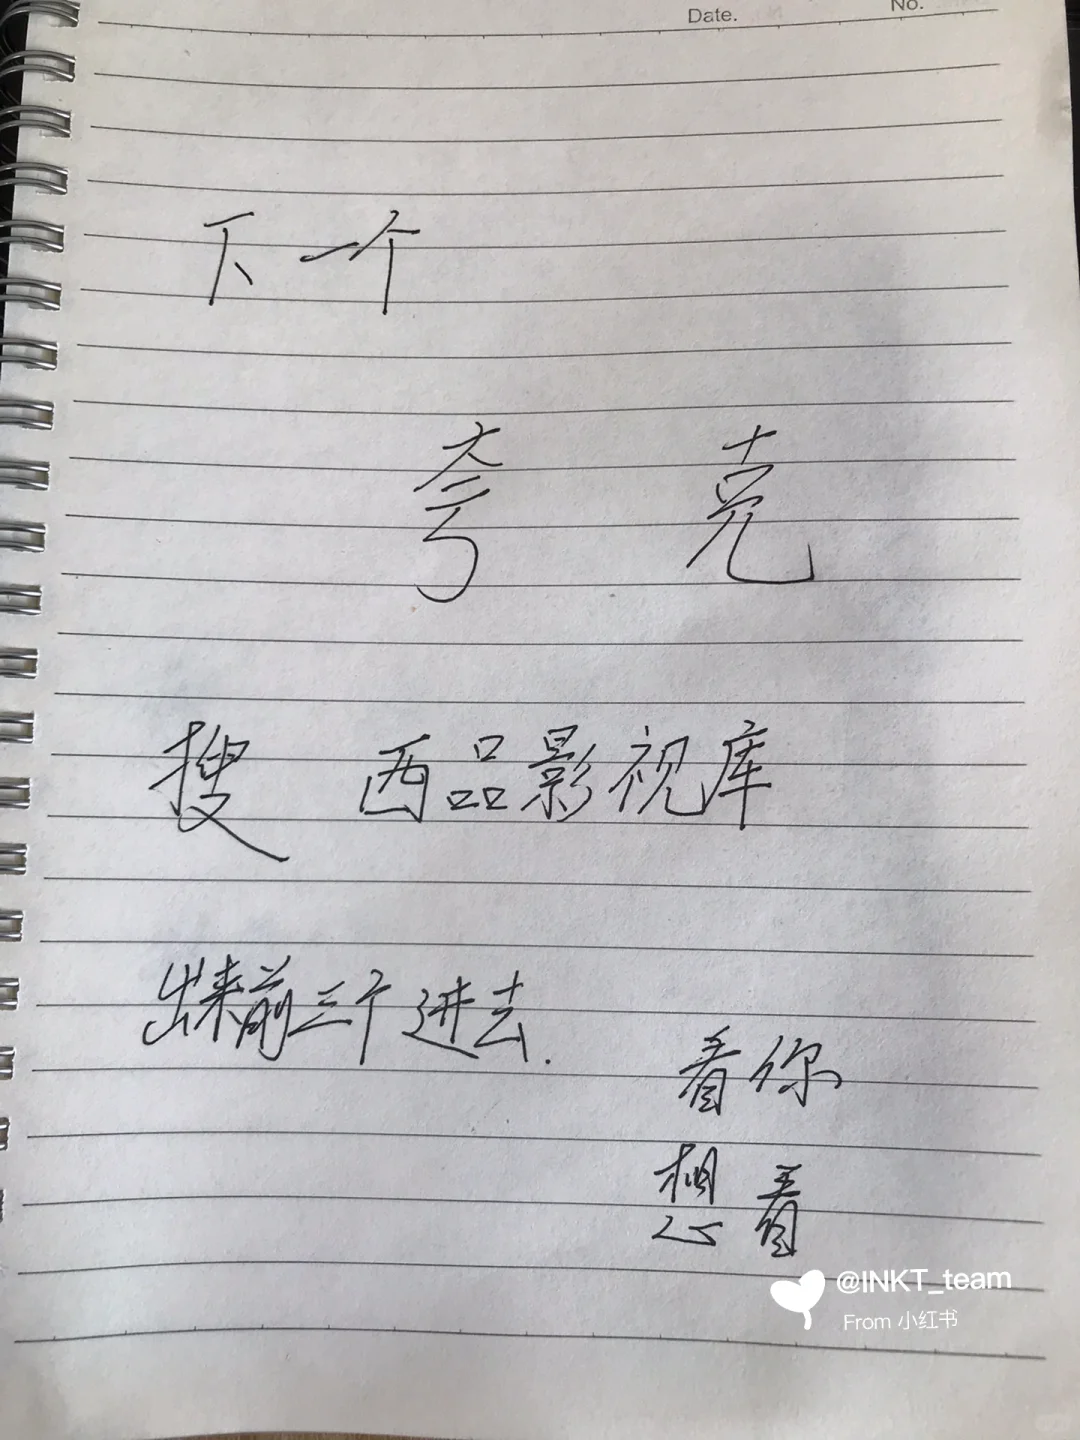 Date.
No.
下一个
夸克
搜 西品影视库
出来前三个进去.
看你
想看
@INKT_team
From 小红书